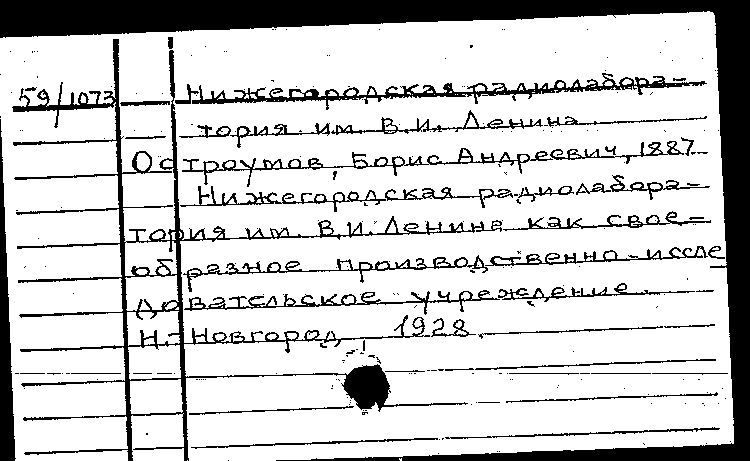 59/1073 Нижегородская радиолабора-
тория им. В.И. Ленина
Остроумов, Борис Андреевич, 1887
Нижегородская радиолабора-
тория им. В.И. Ленина как свое-
образное производственно-иссле
довательское учреждение.
Н.-Новгород 1928.